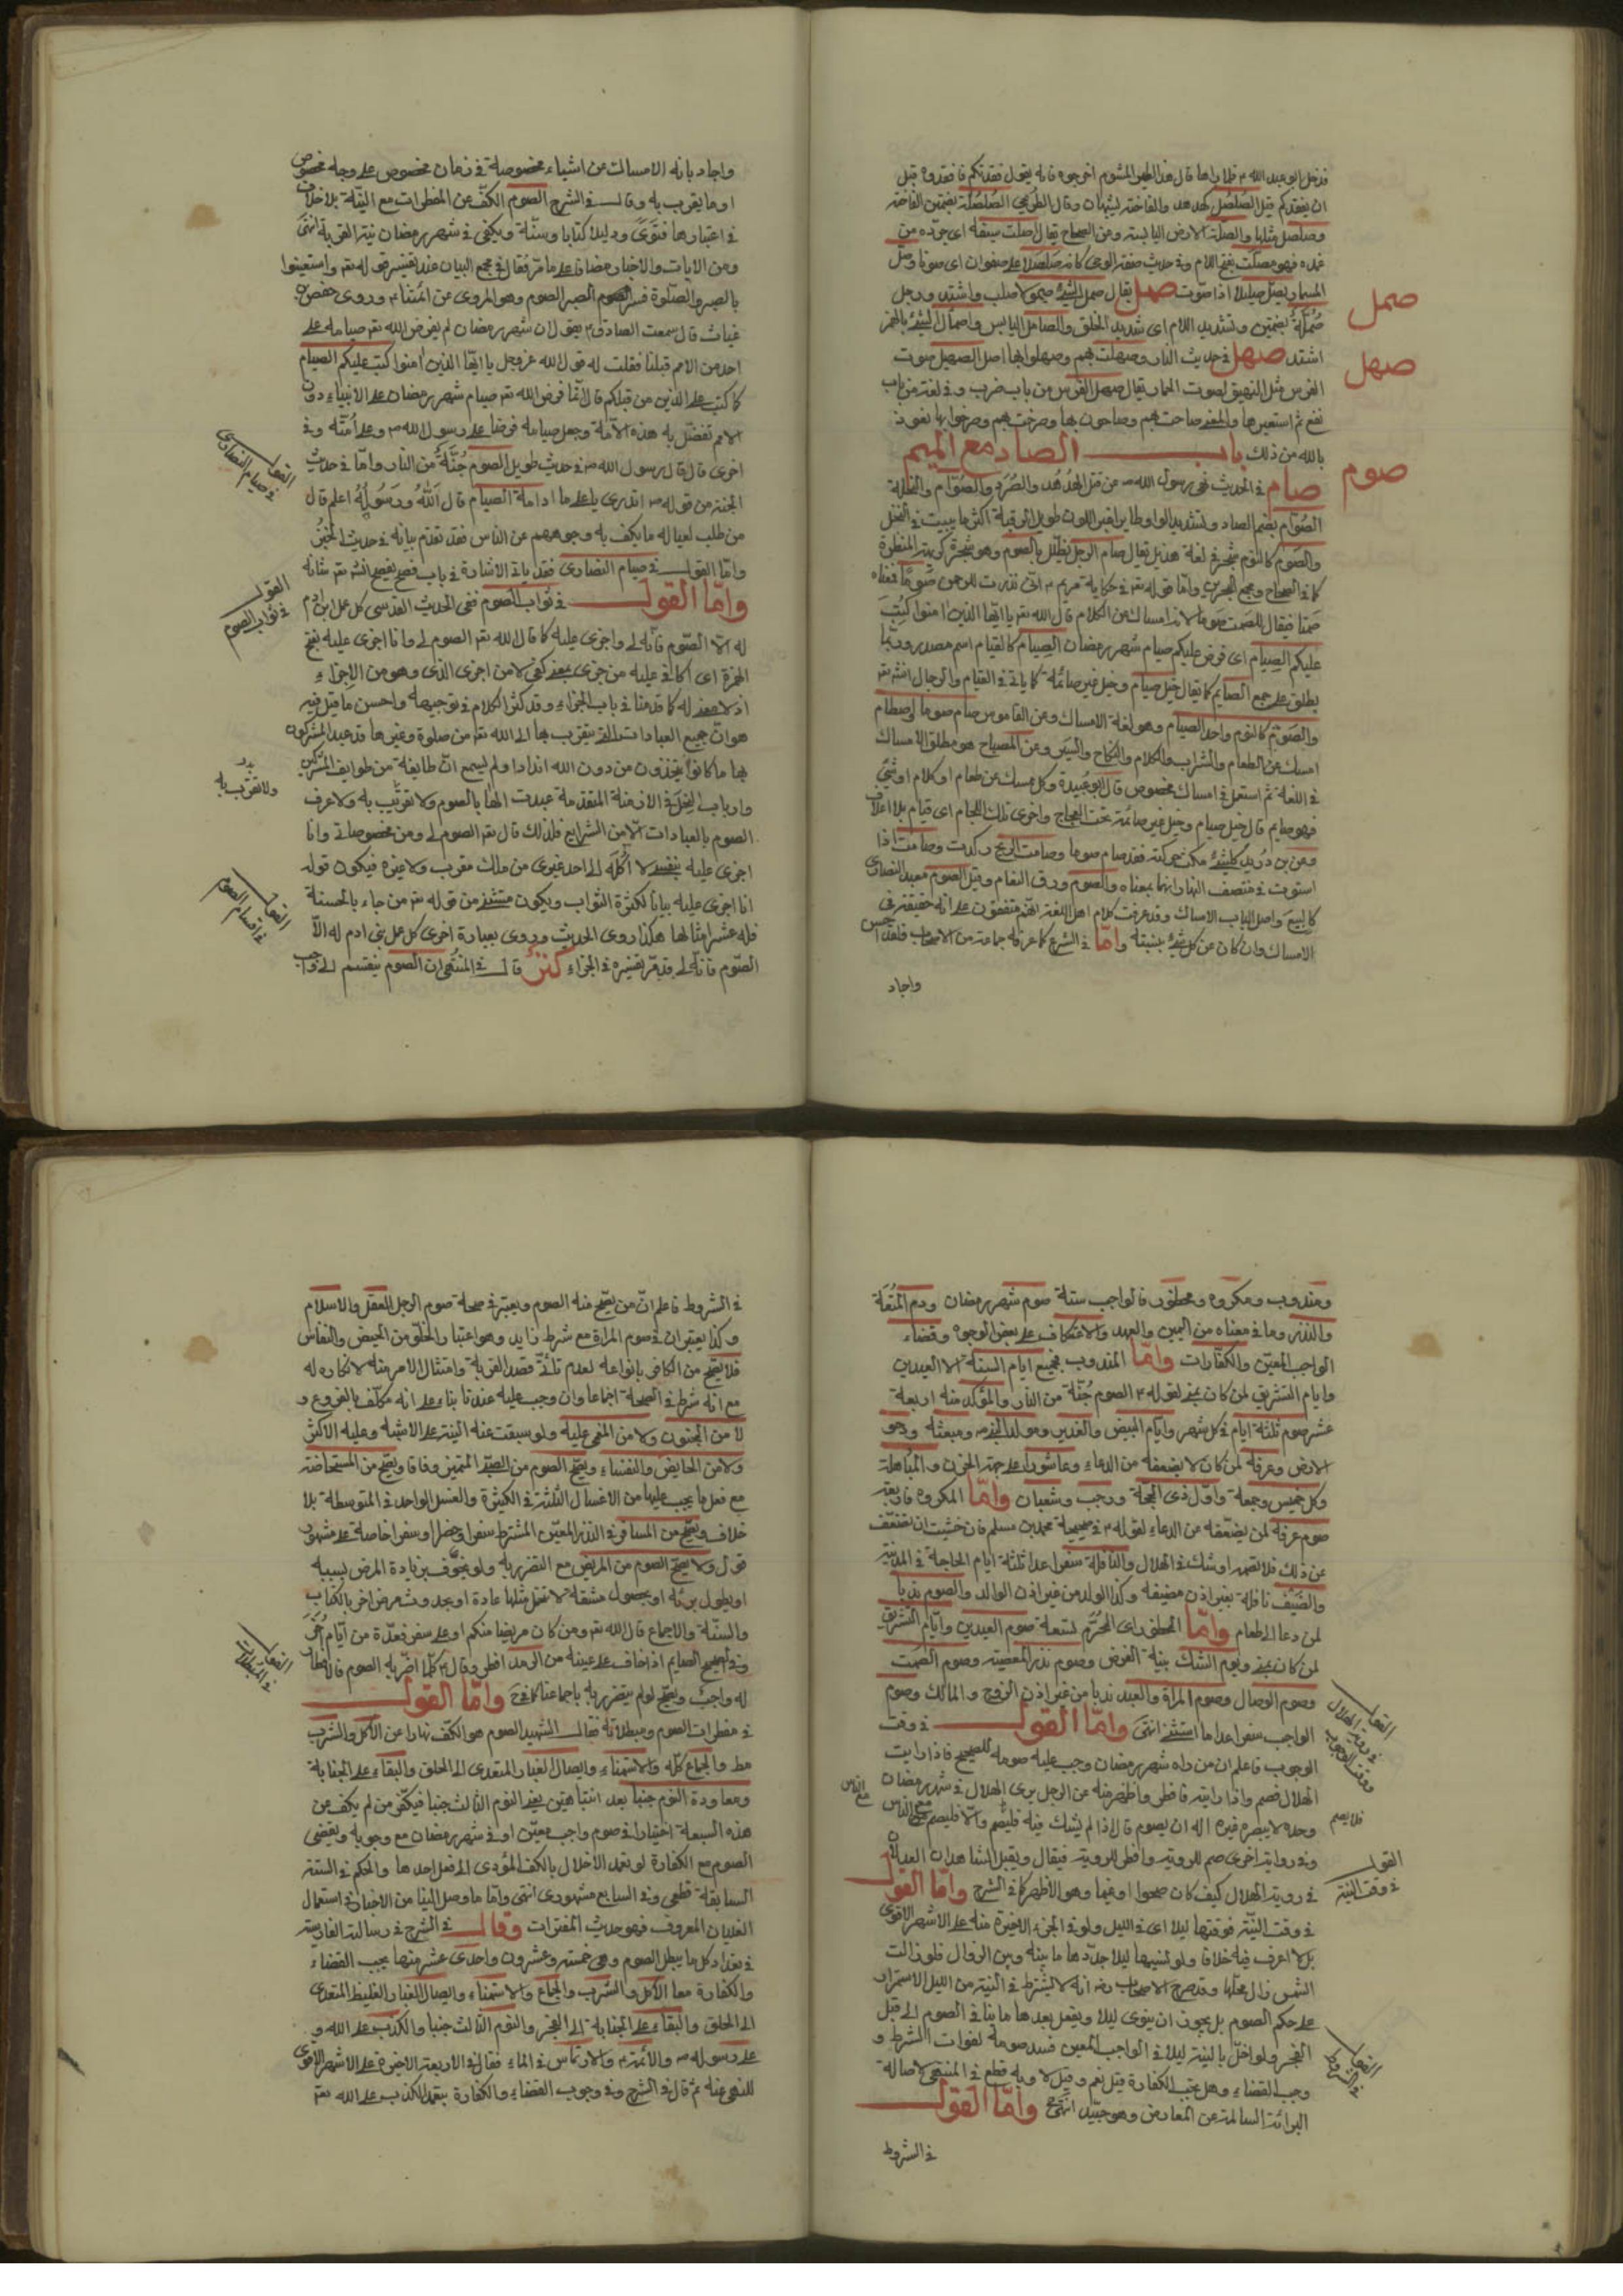 فدخل ابو عبد الله ع فلما راها قال هذا الطير المشوم اخرجوه فانه يقول فقدتكم فافقدوه قبل
ان يفقدكم قيل الصلصل كهدهد والفاختة
وصلصل مثلها والصلة الارض اليابسة ومن الصحاح يقال اصلت سيفه اى جرده من
غمده فهو مصلت بفتح اللام وفى حديث صفة الوحى كانه صلصلة على صفوان اى صوتا وصل
المسمار يصل صليلا اذا صوت صمل يقال صمل الشئ صمولا صلب واشتد ورجل
صمل
صُمُلّة بضمتين وتشديد اللام اى شديد الخلق والصامل اليابس واصمأل الشئ بالهمز
اشتد صهل فى حديث النار وصهلت بهم وصهلوا بها اصل الصهيل صوت
صهل
الفرس مثل النهيق لصوت الحمار يقال صهل الفرس من باب ضرب وفى لغة من باب
نفع ثم استعير ها والمعنى صاحت بهم وصاحوا بها وصرخت بهم وصرخوا بها نعوذ
بالله من ذلك باب الصاد مع الميم
صوم
صام فى الحديث نهى رسول الله ص عن قتل الهدهد والصرد والصوام والنحلة
الصُوّام بضم الصاد وتشديد الواو طاير اغبر اللون طويل الرقبة اكثر ما يبيت فى النخل
والصوم كاليوم شجر فى لغة هذيل يقال صام الرجل تظلل بالصوم وهو شجرة كريهة المنظرة
كما فى الصحاح ومجمع البحرين واما قوله تعه فى حكاية مريم ع انى نذرت للرحمن صوما فمعناه
صمتا فيقال للصمت صوما لانه امساك عن الكلام قال الله تعه يا ايها الذين امنوا كتب
عليكم الصيام اى فرض عليكم صيام شهر رمضان الصيام كالقيام اسم مصدر وربما
يطلق على جمع الصايم كما يقال خيل صيام وخيل غير صائمة كما ياتى فى القيام والرجال انشه تعه
والصوم كاليوم واحد الصيام وهو لغة الامساك وعن القاموس صام صوما واصطام
امسك عن الطعام والشراب والكلام والنكاح والسير وعن المصباح هو مطلق الامساك
فى اللغة ثم استعمل فى امساك مخصوص قال ابو عبيدة وكل ممسك عن طعام او كلام او شئ
فهو صايم قال خيل صيام وخيل غير صائمة تحت العجاج واخرى تلك اللجام اى قيام بلا اعلاف
وعن بن دريد كل شئ سكن حركته فقد صام صوما وصامت الريح ركدت وصامت اذا
استوت فى منتصف النهار انهما بمعناه والصوم ورق النعام وقيل الصوم معبد النصارى
كالبيع واصل الباب الامساك وقد عرفت كلام اهل اللغة انهم متفقون على انه حقيقة فى
الامساك وان كان عن كل شئ بنسبته واما فى الشرع كما عرفه جماعة من الاصحاب فلقد احسن
واجاد
واجاد بانه الامساك عن اشياء مخصوصة فى زمان مخصوص على وجه مخصوص
او ما يقرب به وقال فى الشرح الصوم الكف عن المفطرات مع النية بلا خلاف
فى اعتبارها فتوى ودليلا كتابا وسنة ويكفى فى شهر رمضان نية القربة انتهى
ومن الايات والاخبار مضافا على ما مر فقال فى مجمع البيان عند تفسير قوله تعه واستعينوا
بالصبر والصلوة فسر الصوم الصبر الصوم وهو المروى عن ائمتنا ع وروى حفص بن
غياث قال سمعت الصادق ع يقول ان شهر رمضان لم يفرض الله تعه صيامه على
احد من الامم قبلنا فقلت له قول الله عز وجل يا ايها الذين امنوا كتب عليكم الصيام
كما كتب على الذين من قبلكم قال انما فرض الله تعه صيام شهر رمضان على الانبياء دون
الامم تفضل به هذه الامة وجعل صيامه فرضا على رسول الله ص وعلى امته وفى
اخرى قال قال رسول الله ص فى حديث طويل الصوم جُنّةٌ من النار واما فى حديث
القول فى صيام النصارى
الجنة من قوله ص اتدرى يا على ما ادامة الصيام قال الله ورسوله اعلم قال
من طلب لعياله ما يكف به وجوههم عن الناس فقد تقدم بيانه فى حديث الجنة
واما القول فى صيام النصارى فقد ياتى الاشارة فى باب فصح انشه تعه شانه
واما القول فى ثواب الصوم ففى الحديث القدسى كل عمل ابن ادم
القول فى ثواب الصوم
له الا الصوم فانه لى واجزى عليه كما قال الله تعه الصوم لى وانا اجزى عليه بفتح
الهمزة اى اكافى عليه من جزى بمعنى كفى لا من اجزى الذى وهو من الاجزاء
اذ لا معنى له كما قدمنا فى باب الجزاء وقد كثر الكلام فى توجيهه واحسن ما قيل فيه
هو ان جميع العبادات التى يتقرب بها الى الله تعه من صلوة وغيرها قد عبد المشركون
بها ما كانوا يتخذون من دون الله اندادا ولم يسمع ان طايفة من طوايف المشركين
ولا تقرب به
وارباب النحل فى الازمنة المتقدمة عبدت الها بالصوم ولا تقربت به ولا عرف
الصوم بالعبادات الا من الشرايع فلذلك قال تعه الصوم لى ومن مخصوصاتى وانا
اجزى عليه بنفسى لا اكله الى احد غيرى من ملك مقرب ولا غيره فيكون قوله
انا اجزى عليه بيانا لكثرة الثواب ويكون مستثنى من قوله تعه من جاء بالحسنة
القول فى اقسام الصوم
فله عشر امثالها هكذا روى الحديث وروى بعبارة اخرى كل عمل بنى ادم له الا
الصوم فانه لى وقد مر تفسيره فى الجزاء كنز قال فى المنتهى ان الصوم ينقسم الى واجب
ومندوب ومكروه ومحظور فالواجب ستة صوم شهر رمضان ودم المتعة
والنذر وما فى معناه من اليمين والعهد والاعتكاف على بعض الوجوه وقضاء
الواجب المعين والكفارات واما المندوب فجميع ايام السنة الا العيدين
وايام التشريق لمن كان بمنى لقوله ع الصوم جُنّة من النار والمؤكد منه اربعة
عشر صوم ثلثة ايام فى كل شهر وايام البيض والغدير ومولد النبى ص ومبعثه ودحو
الارض وعرفة لمن كان لا يضعفه من الدعاء وعاشورا على جهة الحزن والمباهلة
وكل خميس وجمعة واول ذى الحجة ورجب وشعبان واما المكروه فاربعة
صوم عرفة لمن يضعفه عن الدعاء لقوله ع فى صحيحة محمد بن مسلم فان خشيت ان تضعف
عن ذلك فلا تصمه او شك فى الهلال والنافلة سفرا عدا ثلثة ايام الحاجة فى المدينة
والضيف نافلة بغير اذن مضيفه وكذا الولد من غير اذن الوالد والصوم ندبا
لمن دعا الى طعام واما المحظور اى المحرم لتسعة صوم العيدين وايام التشريق
لمن كان بمنى ويوم الشك بنية الفرض وصوم نذر المعصية وصوم الصمت
وصوم الوصال وصوم المراة والعبد ندبا من غير اذن الزوج والمالك وصوم
الواجب سفرا عدا ما استثنى انتهى واما القول فى وقت
القول فى روية الهلال ووقت الوجوب
الوجوب فاعلم ان من راه شهر رمضان وجب عليه صومه للصحيح فاذا رايت
الهلال فصم واذا رايته فافطر واظهر منه عن الرجل يرى الهلال فى شهر رمضان
وحده لا يبصره غيره اله ان يصوم قال اذا لم يشك فيه فليصم والا فليصم مع الناس
مع الناس
فلا يصم
وفى رواية اخرى صم للروية وافطر للروية فيقال ويقبل الشاهدان العدلان
فى روية الهلال كيف كان صحوا او غيما وهو الاظهر كما فى الشرح واما القول
القول فى وقت النية
فى وقت النية فوقتها ليلا اى فى الليل ولو فى الجزء الاخيرة منه على الاشهر الاقوى
بل لا اعرف فيه خلافا ولو نسيها ليلا جددها ما بينه وبين الزوال فلو زالت
الشمس زال محلها وقد صرح الاصحاب رض انه لا يشترط فى النية من الليل الاستمرار
على حكم الصوم بل يجوز ان ينوى ليلا ويفعل بعدها ما ينافى الصوم الى قبل
الفجر ولو اخل بالنية ليلا فى الواجب المعين فسد صومه لفوات الشرط و
القول فى الشروط
وجب القضاء وهل يجب الكفارة قيل نعم وقيل لا وبه قطع فى المنتهى لاصالة
البرائة السالمة عن المعارض وهو جيد انتهى واما القول
فى الشروط
فى الشروط فاعلم ان من يصح منه الصوم ويعتبر فى صحة صوم الرجل العقل والاسلام
وكذا يعتبران فى صوم المراة مع شرط زايد وهو اعتبار الخلو من الحيض والنفاس
فلا يصح من الكافر بانواعه لعدم تاتى قصد القربة وامتثال الامر منه لانكاره له
مع انه شرط فى الصحة اجماعا وان وجب عليه عندنا بناء على انه مكلف بالفروع و
لا من المجنون ولا من المغمى عليه ولو سبقت عنه النية على الاشبه وعليه الاكثر
ولا من الحايض والنفساء ويصح الصوم من الصبى المميز وفاقا ويصح من المستحاضة
مع فعل ما يجب عليها من الاغسال الثلثة فى الكثيرة والغسل الواحد فى المتوسطة بلا
خلاف ويصح من المسافر فى النذر المعين المشترط سفرا وحضرا او سفرا خاصة على مشهور
قول ولا يصح الصوم من المريض مع التضرر به ولو بتخوف بزيادة المرض بسببه
او بطول برئه او بحصول مشقة لا تتحمل مثلها عادة او بحدوث مرض اخر بالكتاب
والسنة والاجماع قال الله تعه ومن كان مريضا منكم او على سفر فعدة من ايام اخر
وفى الصحيح الصايم اذا خاف على عينيه من الرمد افطر وقال ع كلما اضر به الصوم فالافطار
القول فى المبطلات
له واجب ويصح لو لم يتضرر به باجماعنا كما فى ح واما القول
فى مفطرات الصوم ومبطلاته فقال الشهيد الصوم هو الكف نهارا عن الاكل والشرب
مط والجماع كله والاستمناء وايصال الغبار المتعدى الى الحلق والبقاء على الجنابة
ومعاودة النوم جنبا بعد انتباهتين يعنى النوم الثالث جنبا فيكفر من لم يكف عن
هذه السبعة اختيارا فى صوم واجب معين او فى شهر رمضان مع وجوبه ويقضى
الصوم مع الكفارة لو تعمد الاخلال بالكف المؤدى الى فعل احدها والحكم فى الستة
السابقة قطعى وفى السابع مشهورى انتهى واما ما وصل الينا من الاخبار فى استعمال
الغليان المعروف فهو حديث المفترات وقال فى الشرح فى رسالته الفارسية
فى تعداد كل ما يبطل الصوم وهى خمسة وعشرون واحدى عشر منها يجب القضاء
والكفارة معا الاكل والشرب والجماع والاستمناء وايصال الغبار الغليظ المتعدى
الى الحلق والبقاء على الجنابة الى الفجر والنوم الثالث جنبا والكذب على الله و
على رسوله ص والائمة ع والارتماس فى الماء فقال فى الاربعة الاخيرة على الاشهر الاقوى
للنهى عنه ثم قال فى الشرح وفى وجوب القضاء والكفارة بتعمد الكذب على الله تعه